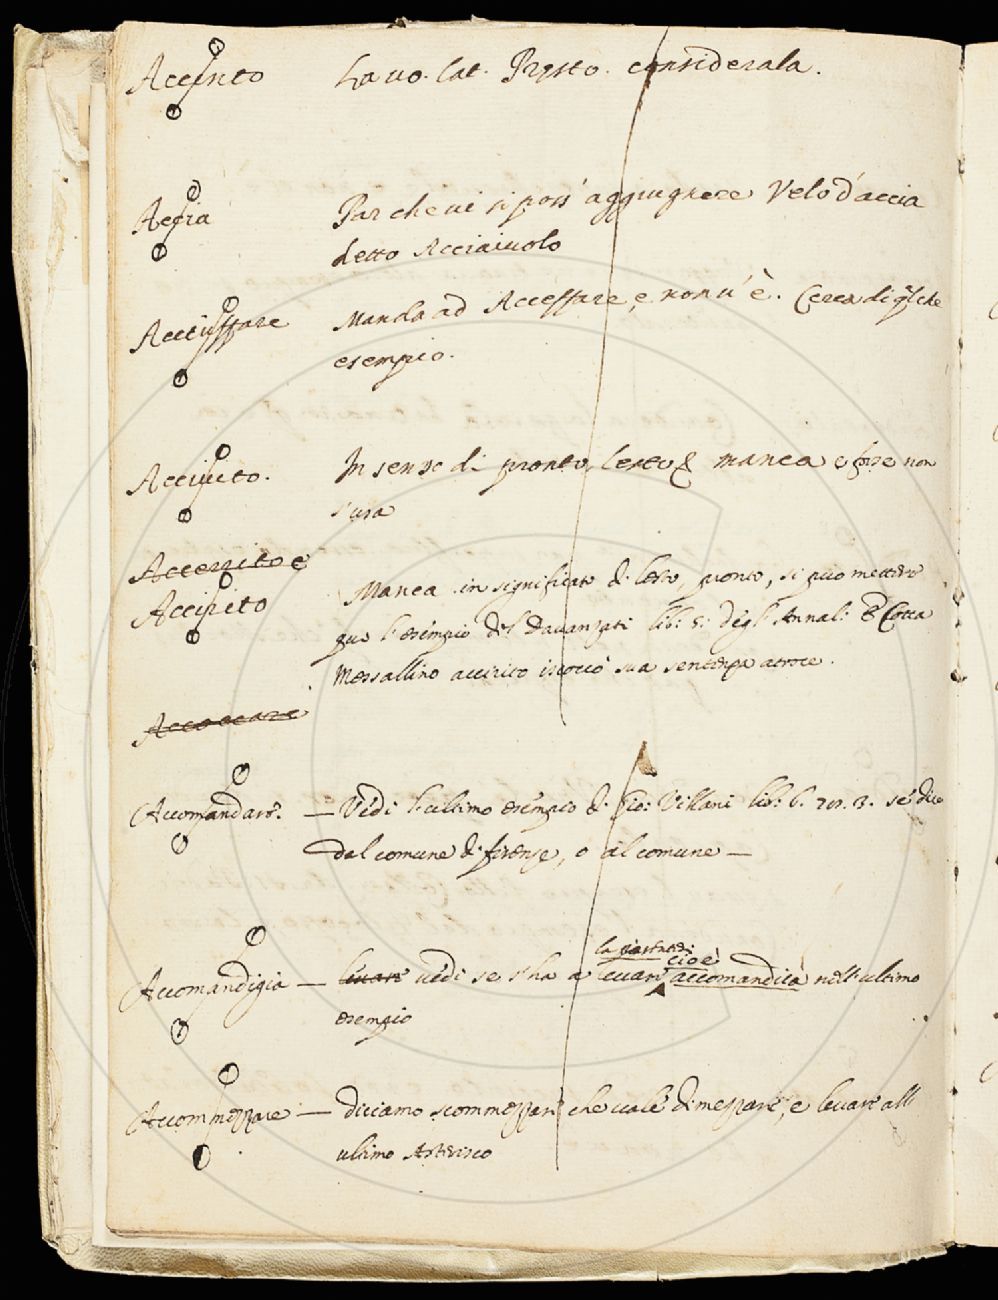 Accinto La uo. lat. Presto. considerala.
Accia Par che ui si poss' aggiugnere Velo d'accia
detto Acciaiuolo
Acciuffare Manda ad Acceffare, e non u' è. Cerca di qlche
esempio.
Acciuito. In senso di pronto, lesto & manca e forse non
s'usa
Accerrito e
Accirito Manca in significato di lesto, pronto, si può mettere
qua l'esempio del Dauanzati lib: 5: degl'Annali: E Cotta
Messallino accirito iscoccò sua sentenza atroce.
Accoccare
Accomandare. — Vedi l'ultimo esempio di Gio: Villani lib: 6. se dice
dal comune di firenze, o al comune —
la
cioè
Accomandigia — leuare uedi se s'ha a leuare accomandita nell'ultimo
esempio
Accommezzare — diciamo scommezzare che uale dimezzare, e leuare all'
ultimo Asterisco